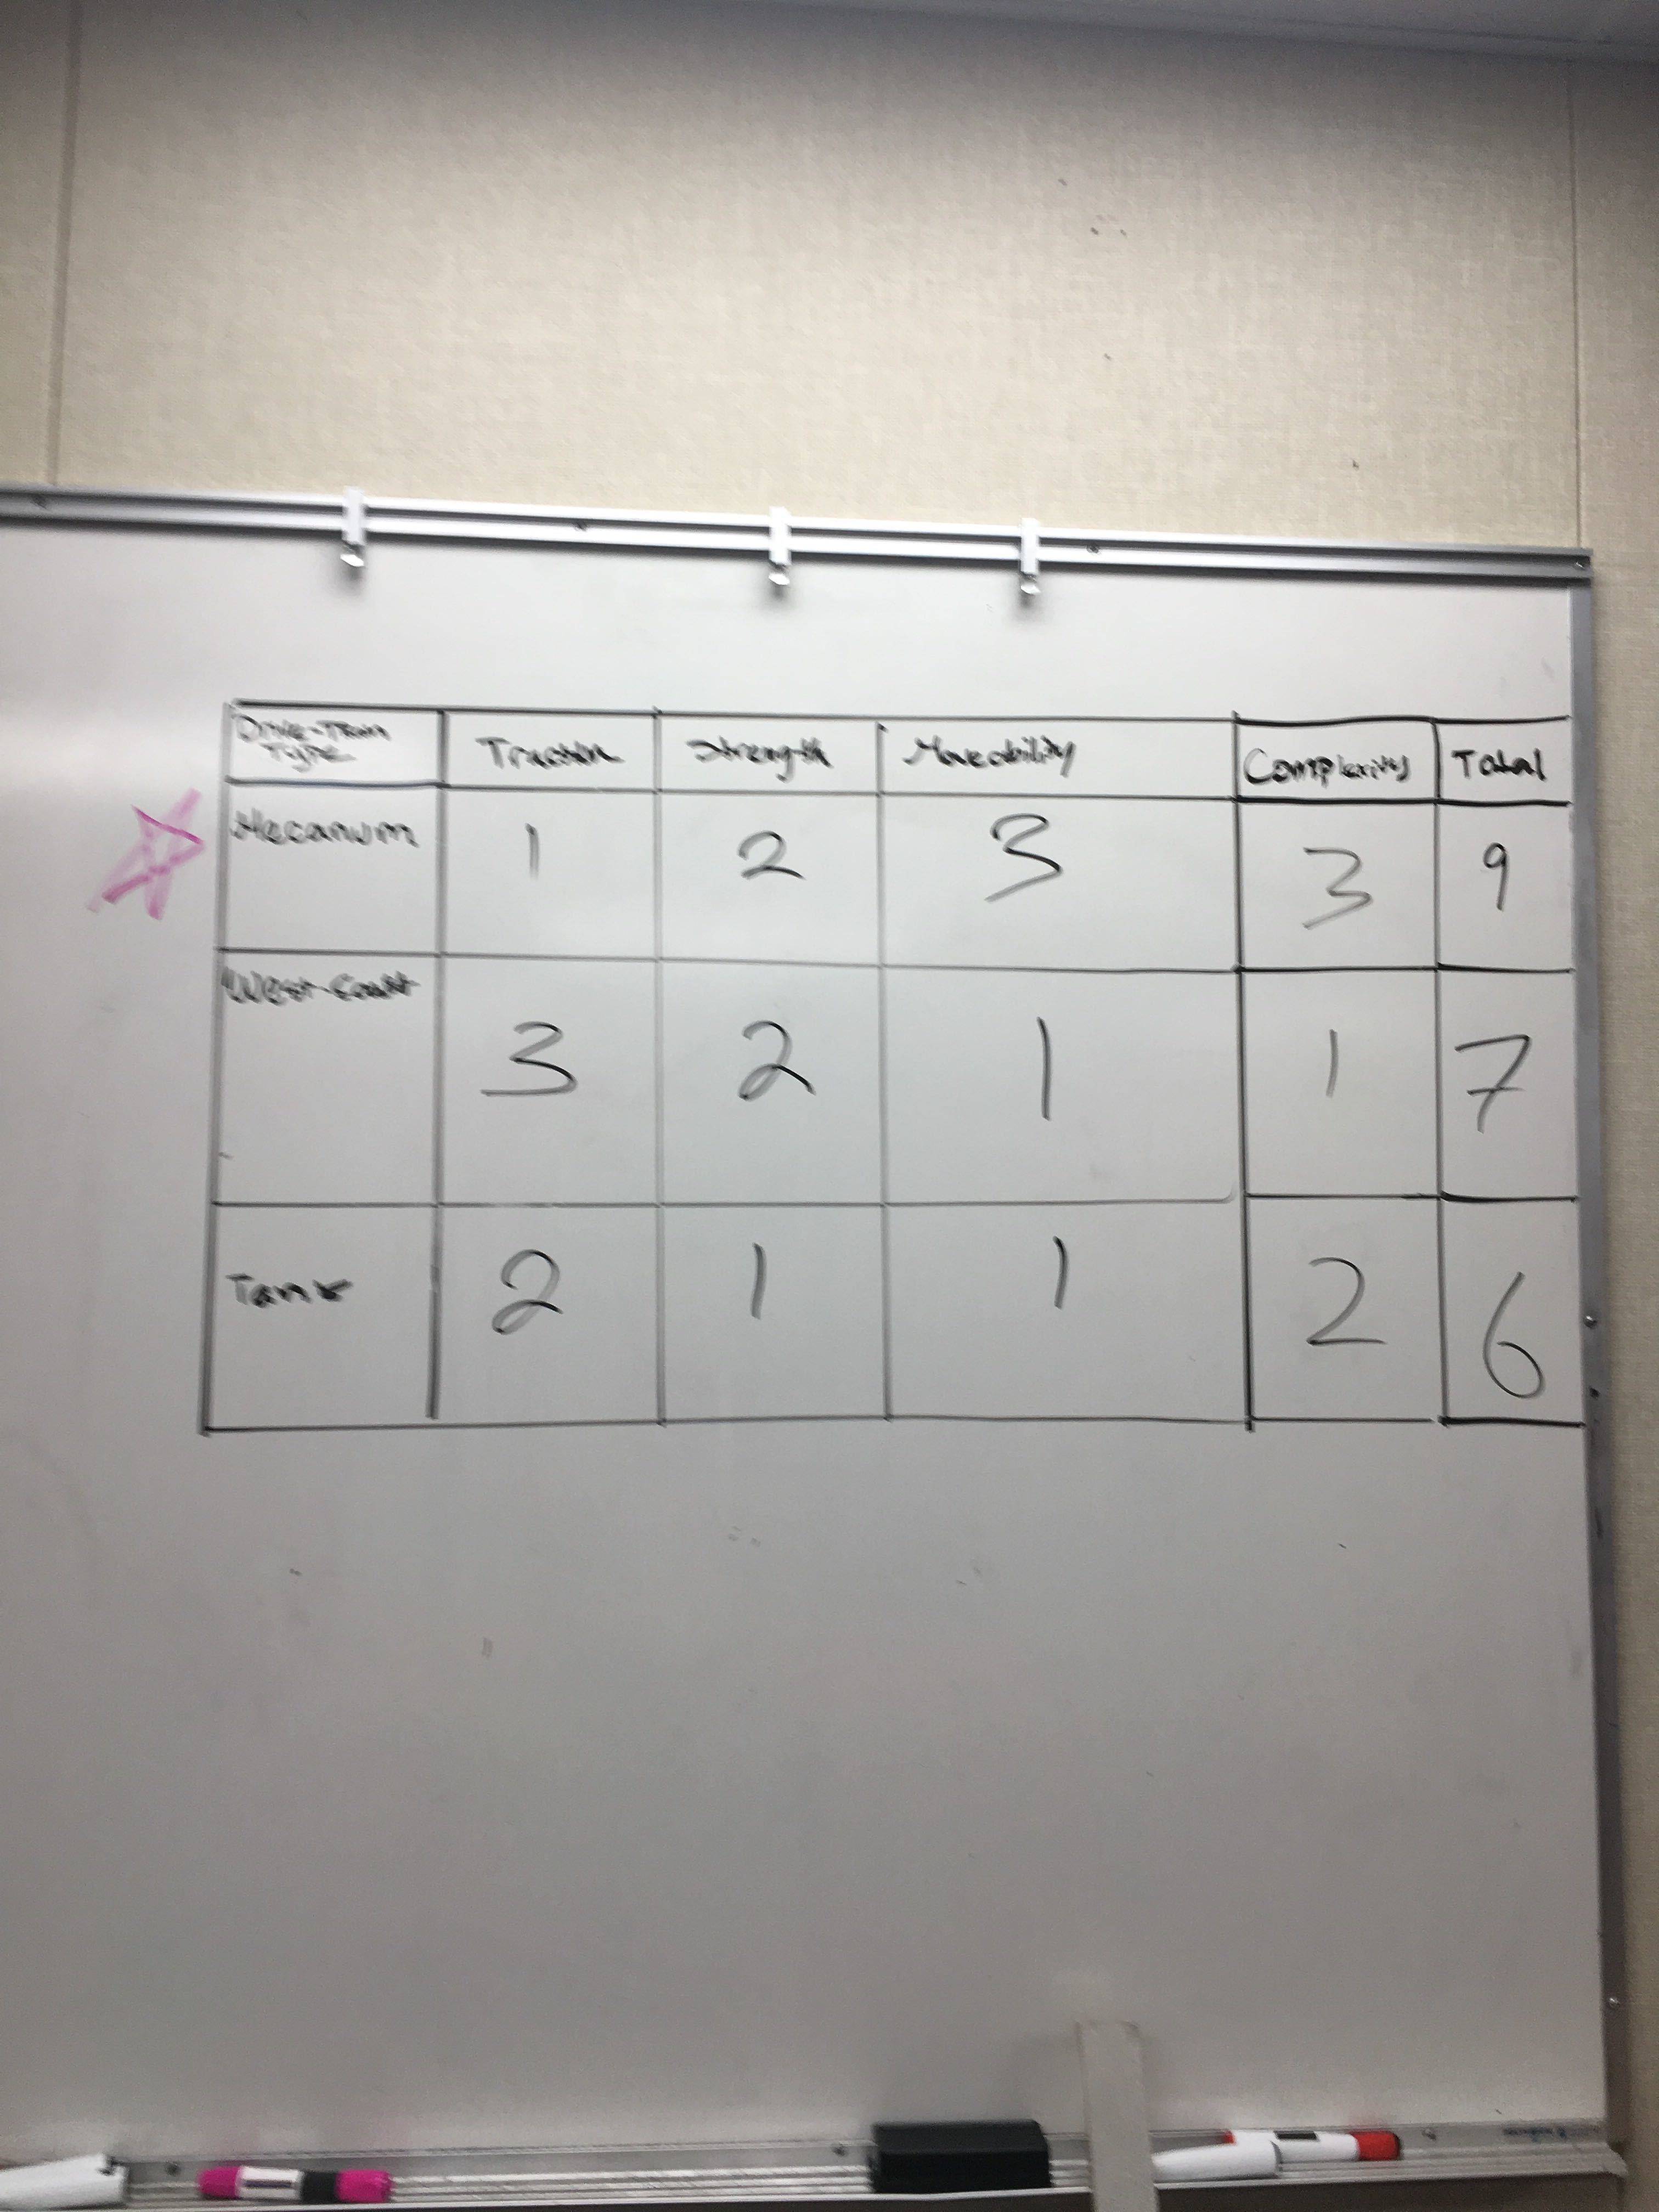 Drive-Train Type
Traction
Strength
Moveability
Complexity
Total
Mecanum
1
2
3
3
9
West-Coast
3
2
1
1
7
Tank
2
1
1
2
6